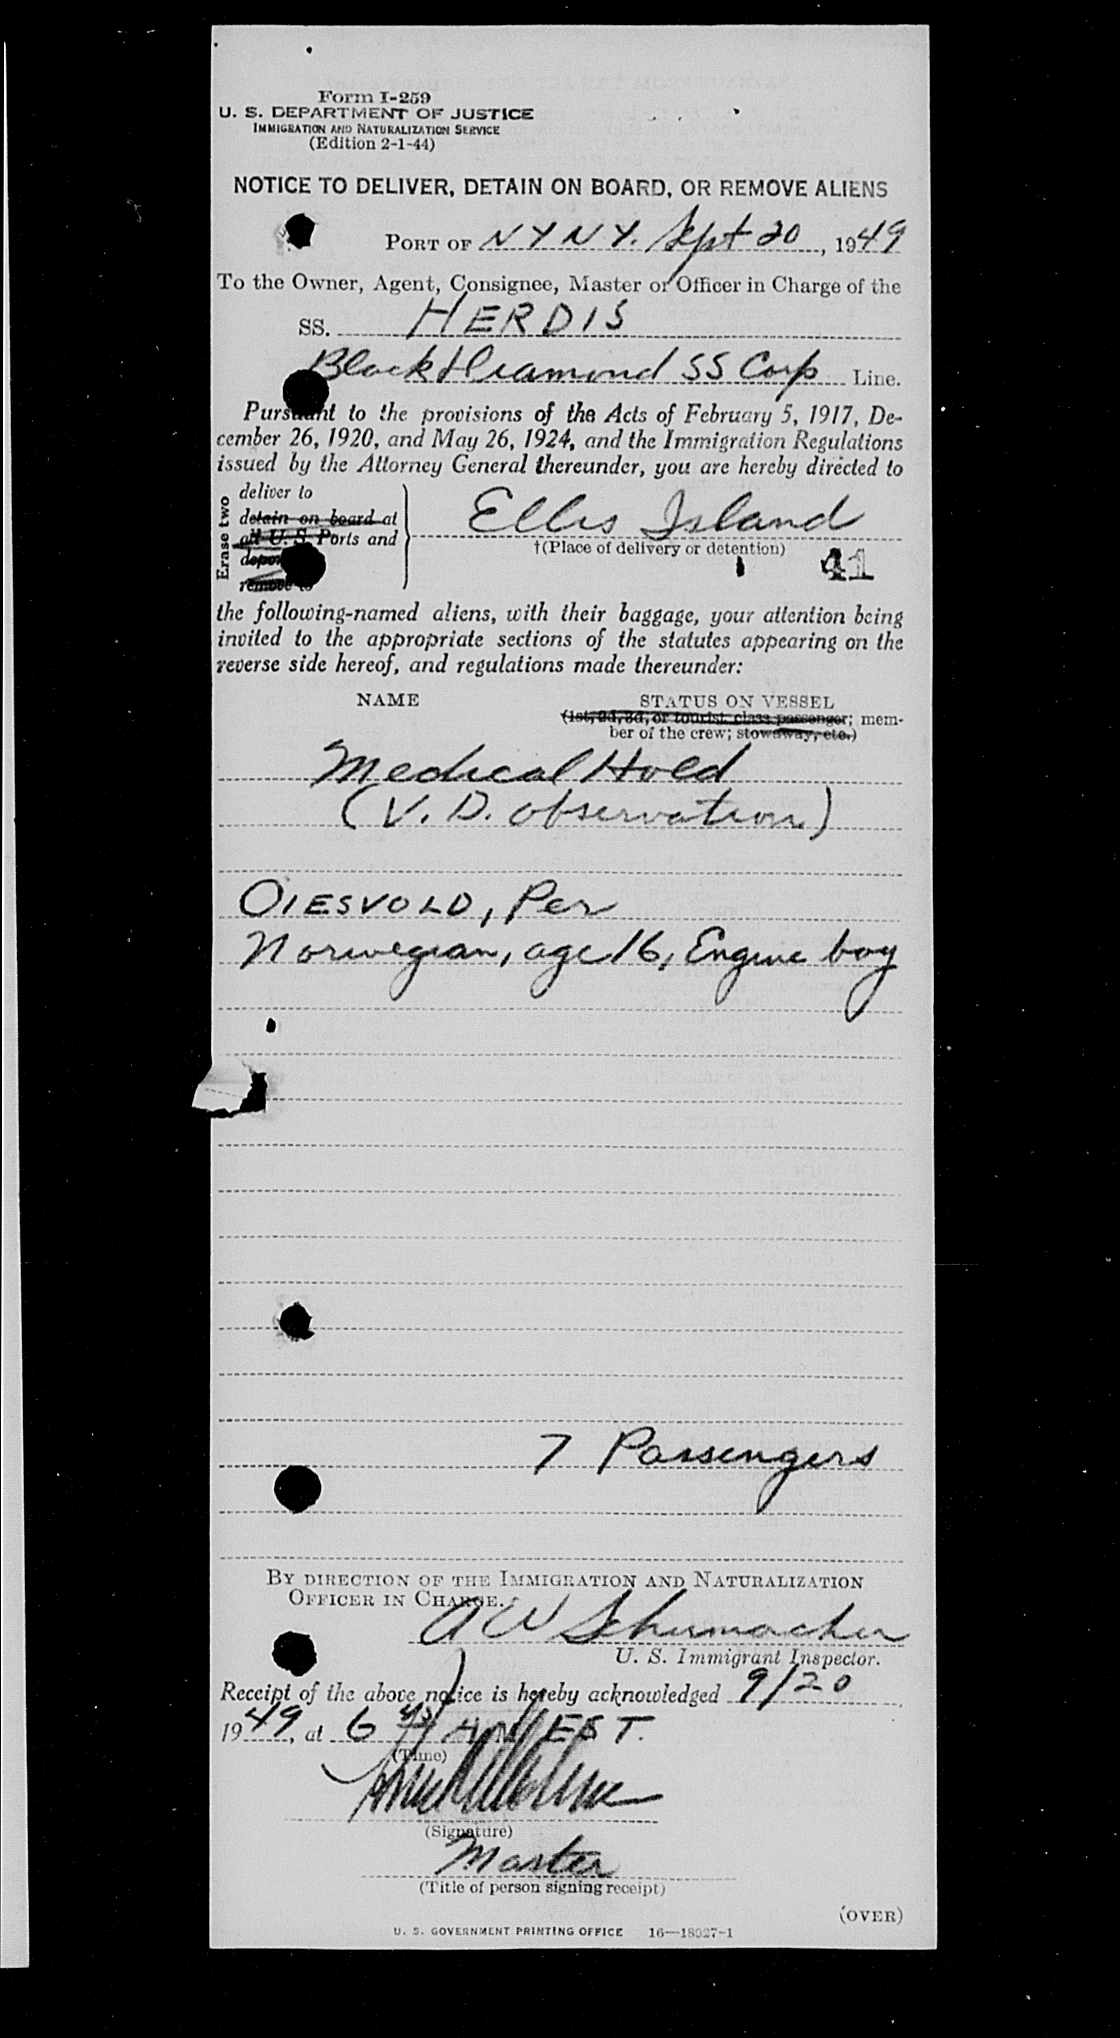 Form I-259
U. S. DEPARTMENT OF JUSTICE
IMMIGRATION AND NATURALIZATION SERVICE
(Edition 2-1-44)
NOTICE TO DELIVER, DETAIN ON BOARD, OR REMOVE ALIENS
PORT OF N Y N Y. Sept 20, 1949
To the Owner, Agent, Consignee, Master or Officer in Charge of the
SS. HERDIS
Black Diamond SS Corp Line.
Pursuant to the provisions of the Acts of February 5, 1917, De-
cember 26, 1920, and May 26, 1924, and the Immigration Regulations
issued by the Attorney General thereunder, you are hereby directed to
Erase two
deliver to
detain on board at
all U. S. Ports and
remove to
Ellis Island
†(Place of delivery or detention)
41
the following-named aliens, with their baggage, your attention being
invited to the appropriate sections of the statutes appearing on the
reverse side hereof, and regulations made thereunder:
NAME STATUS ON VESSEL
(1st, 2d, 3d, or tourist class passenger; mem-
ber of the crew; stowaway, etc.)
Medical Hold
(V. D. observation)
OIESVOLD, Per
Norwegian, age 16, Engine boy
7 Passengers
BY DIRECTION OF THE IMMIGRATION AND NATURALIZATION
OFFICER IN CHARGE.
A W Schumacher
U. S. Immigrant Inspector.
Receipt of the above notice is hereby acknowledged 9/20
1949, at 6 45 AM EST.
(Time)
(Signature)
Master
(Title of person signing receipt)
(OVER)
U. S. GOVERNMENT PRINTING OFFICE 16—18927-1